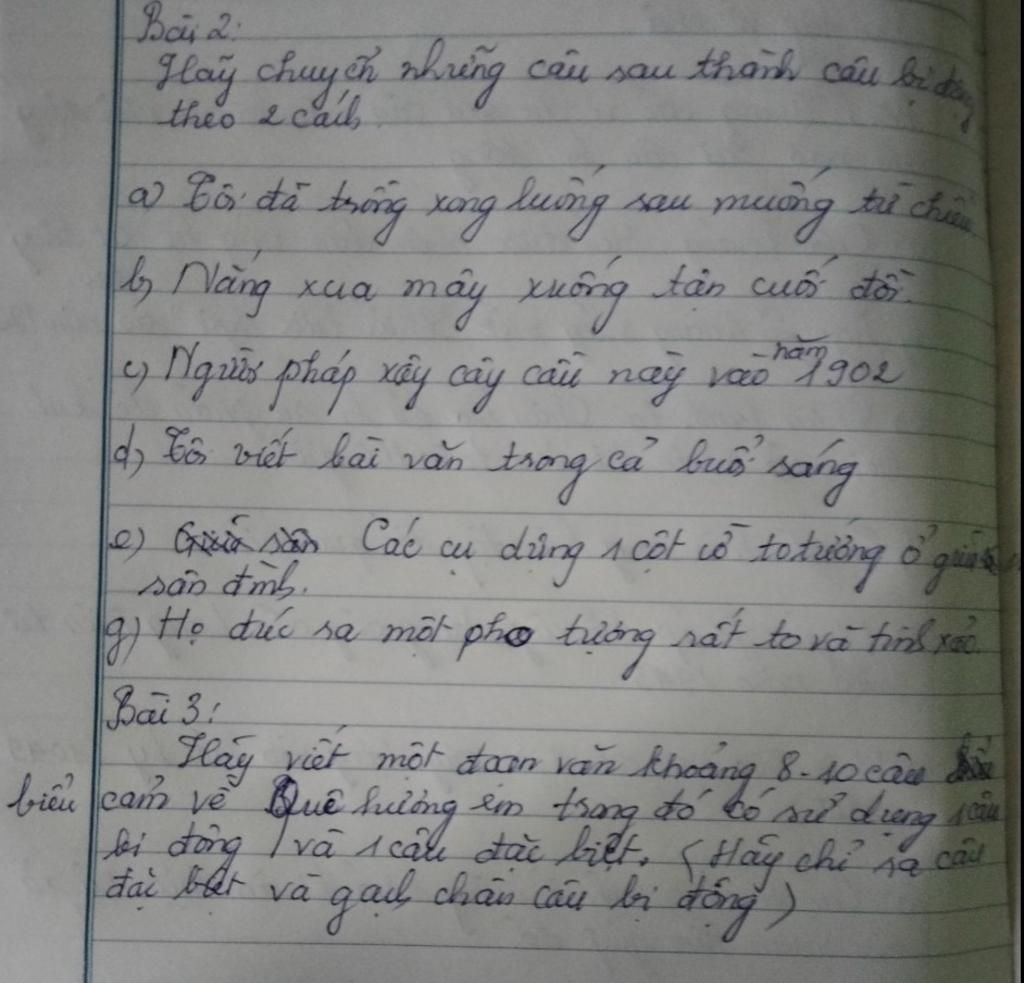 Bài 2:
Hãy chuyển những câu sau thành câu bị động
theo 2 cách.
a) Tôi đã trồng xong luống rau muống từ chiều.
b) Nắng xua mây xuống tận cuối đồi.
c) Người pháp xây cây cầu này vào năm 1902
d) Tôi viết bài văn trong cả buổi sáng
e) Các cụ dựng 1 cột cờ to tướng ở giữa
sân đình.
g) Họ đúc ra một pho tượng rất to và tinh xảo.
Bài 3:
Hãy viết một đoạn văn khoảng 8-10 câu
biểu cảm về Quê hương em trong đó có sử dụng 1 câu
bị động và 1 câu đặc biệt. (Hãy chỉ ra câu
đặc biệt và gạch chân câu bị động)